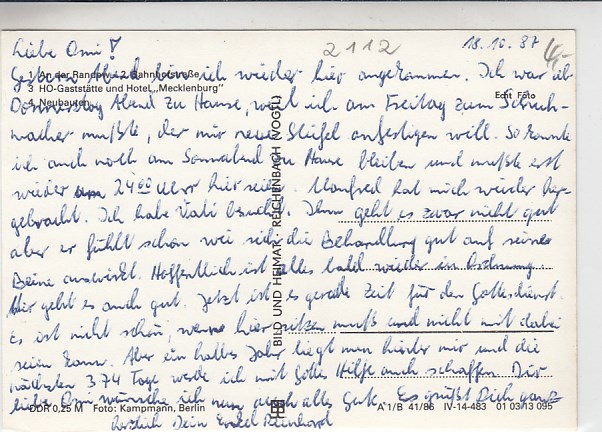 Liebe Omi!
2112
18.10.87
1 An der Randow 2 Bahnhofstraße
3 HO-Gaststätte und Hotel „Mecklenburg"
4 Neubauten
Echt Foto
Gestern Abend bin ich wieder hier angekommen. Ich war ab
Donnerstag Abend zu Hause, weil ich am Freitag zum Schuh-
macher mußte, der mir neue Stiefel anfertigen will. So konnte
ich auch noch am Sonnabend zu Hause bleiben und mußte erst
wieder um 24⁰⁰ Uhr hier sein. Manfred hat mich wieder her-
gebracht. Ich habe Vati besucht. Ihm geht es zwar nicht gut
aber er fühlt schon wie sich die Behandlung gut auf seine
Beine auswirkt. Hoffentlich ist alles bald wieder in Ordnung.
Mir geht es auch gut. Jetzt ist es gerade Zeit für den Gottesdienst.
Es ist nicht schön, wenn hier sitzen muß und nicht mit dabei
sein kann. Aber ein halbes Jahr liegt nun hinter mir und die
nächsten 374 Tage werde ich mit Gottes Hilfe auch schaffen. Dir
liebe Omi wünsche ich nun auch alles Gute. Es grüßt Dich ganz
herzlich Dein Enkel Reinhard
BILD UND HEIMAT REICHENBACH (VOGTL)
DDR 0,25 M Foto: Kampmann, Berlin
A 1/B 41/86 IV-14-483 01 03 13 095